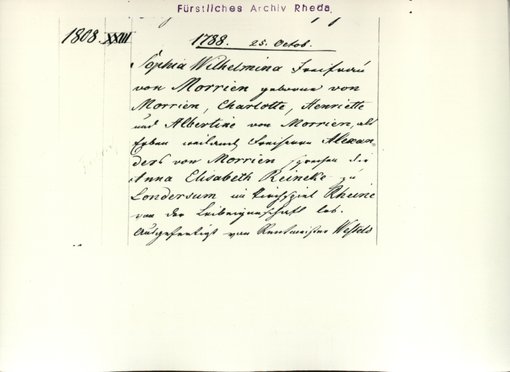 Fürstliches Archiv Rheda
1808. XXIII 1788. 25. Octob.
Sophia Wilhelmina Freifrau
von Morrien geborne von
Morrien, Charlotte, Henriette
und Albertine von Morrien, als
Erben weiland Freiherrn Alexan-
ders von Morrien sprechen die
Anna Elisabeth Reineke zu
Londersum im Kirchspiel Rheine
von der Leibeigenschaft los.
Ausgefertigt von Rentmeister Wessels